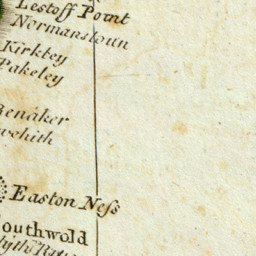 Lestoff Point
Normanstoun
Kirkbey
Pakeley
Benaker
wehith
Easton Neſs
outhwold